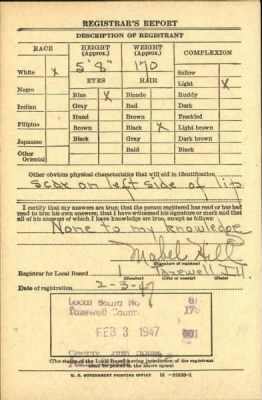 REGISTRAR'S REPORT
DESCRIPTION OF REGISTRANT
RACE HEIGHT (Approx.) WEIGHT (Approx.) COMPLEXION
5' 8" 170
White X Sallow
EYES HAIR Light X
Negro Blue X Blonde Ruddy
Indian Gray Red Dark
Hazel Brown Freckled
Filipino Brown Black X Light brown
Japanese Black Gray Dark brown
Other Oriental Bald Black
Other obvious physical characteristics that will aid in identification
scar on left side of lip
I certify that my answers are true; that the person registered has read or has had
read to him his own answers; that I have witnessed his signature or mark and that
all of his answers of which I have knowledge are true, except as follows:
None to my knowledge
Mabel Hill
(Signature of registrar)
Registrar for Local Board 1 Tazewell Ill.
(Number) (City or county) (State)
Date of registration 2-3-47
Local Board No.
Tazewell County
FEB 3 1947
(The stamp of the Local Board having jurisdiction of the registrant
shall be placed in the above space)
U. S. GOVERNMENT PRINTING OFFICE 16-21630-1